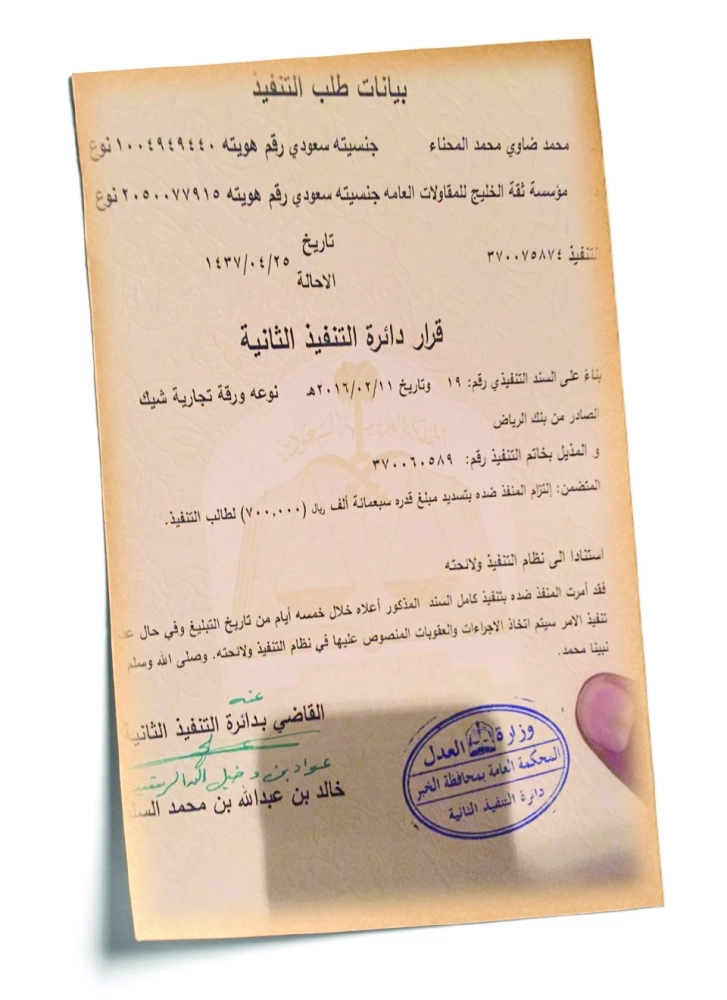 بيانات طلب التنفيذ
محمد ضاوي محمد المحناء جنسيته سعودي رقم هويته ١٠٠٤٩٤٩٤٤٠ نوع
مؤسسة ثقة الخليج للمقاولات العامه جنسيته سعودي رقم هويته ٢٠٥٠٠٧٧٩١٥ نوع
التنفيذ ٣٧٠٠٧٥٨٧٤ تاريخ الاحالة ١٤٣٧/٠٤/٢٥
قرار دائرة التنفيذ الثانية
بناءً على السند التنفيذي رقم: ١٩ وتاريخ ٢٠١٦/٠٢/١١هـ نوعه ورقة تجارية شيك
الصادر من بنك الرياض
و المذيل بخاتم التنفيذ رقم: ٣٧٠٠٦٠٥٨٩
المتضمن: إلتزام المنفذ ضده بتسديد مبلغ قدره سبعمائة ألف ريال (٧٠٠,٠٠٠) لطالب التنفيذ.
استنادا الى نظام التنفيذ ولائحته
فقد أمرت المنفذ ضده بتنفيذ كامل السند المذكور أعلاه خلال خمسه أيام من تاريخ التبليغ وفي حال
تنفيذ الامر سيتم اتخاذ الاجراءات والعقوبات المنصوص عليها في نظام التنفيذ ولائحته. وصلى الله وسلم
نبينا محمد.
عنه
القاضي بدائرة التنفيذ الثانية
عواد بن دخيل الله
خالد بن عبدالله بن محمد
وزارة العدل
المحكمة العامة بمحافظة الخبر
دائرة التنفيذ الثانية